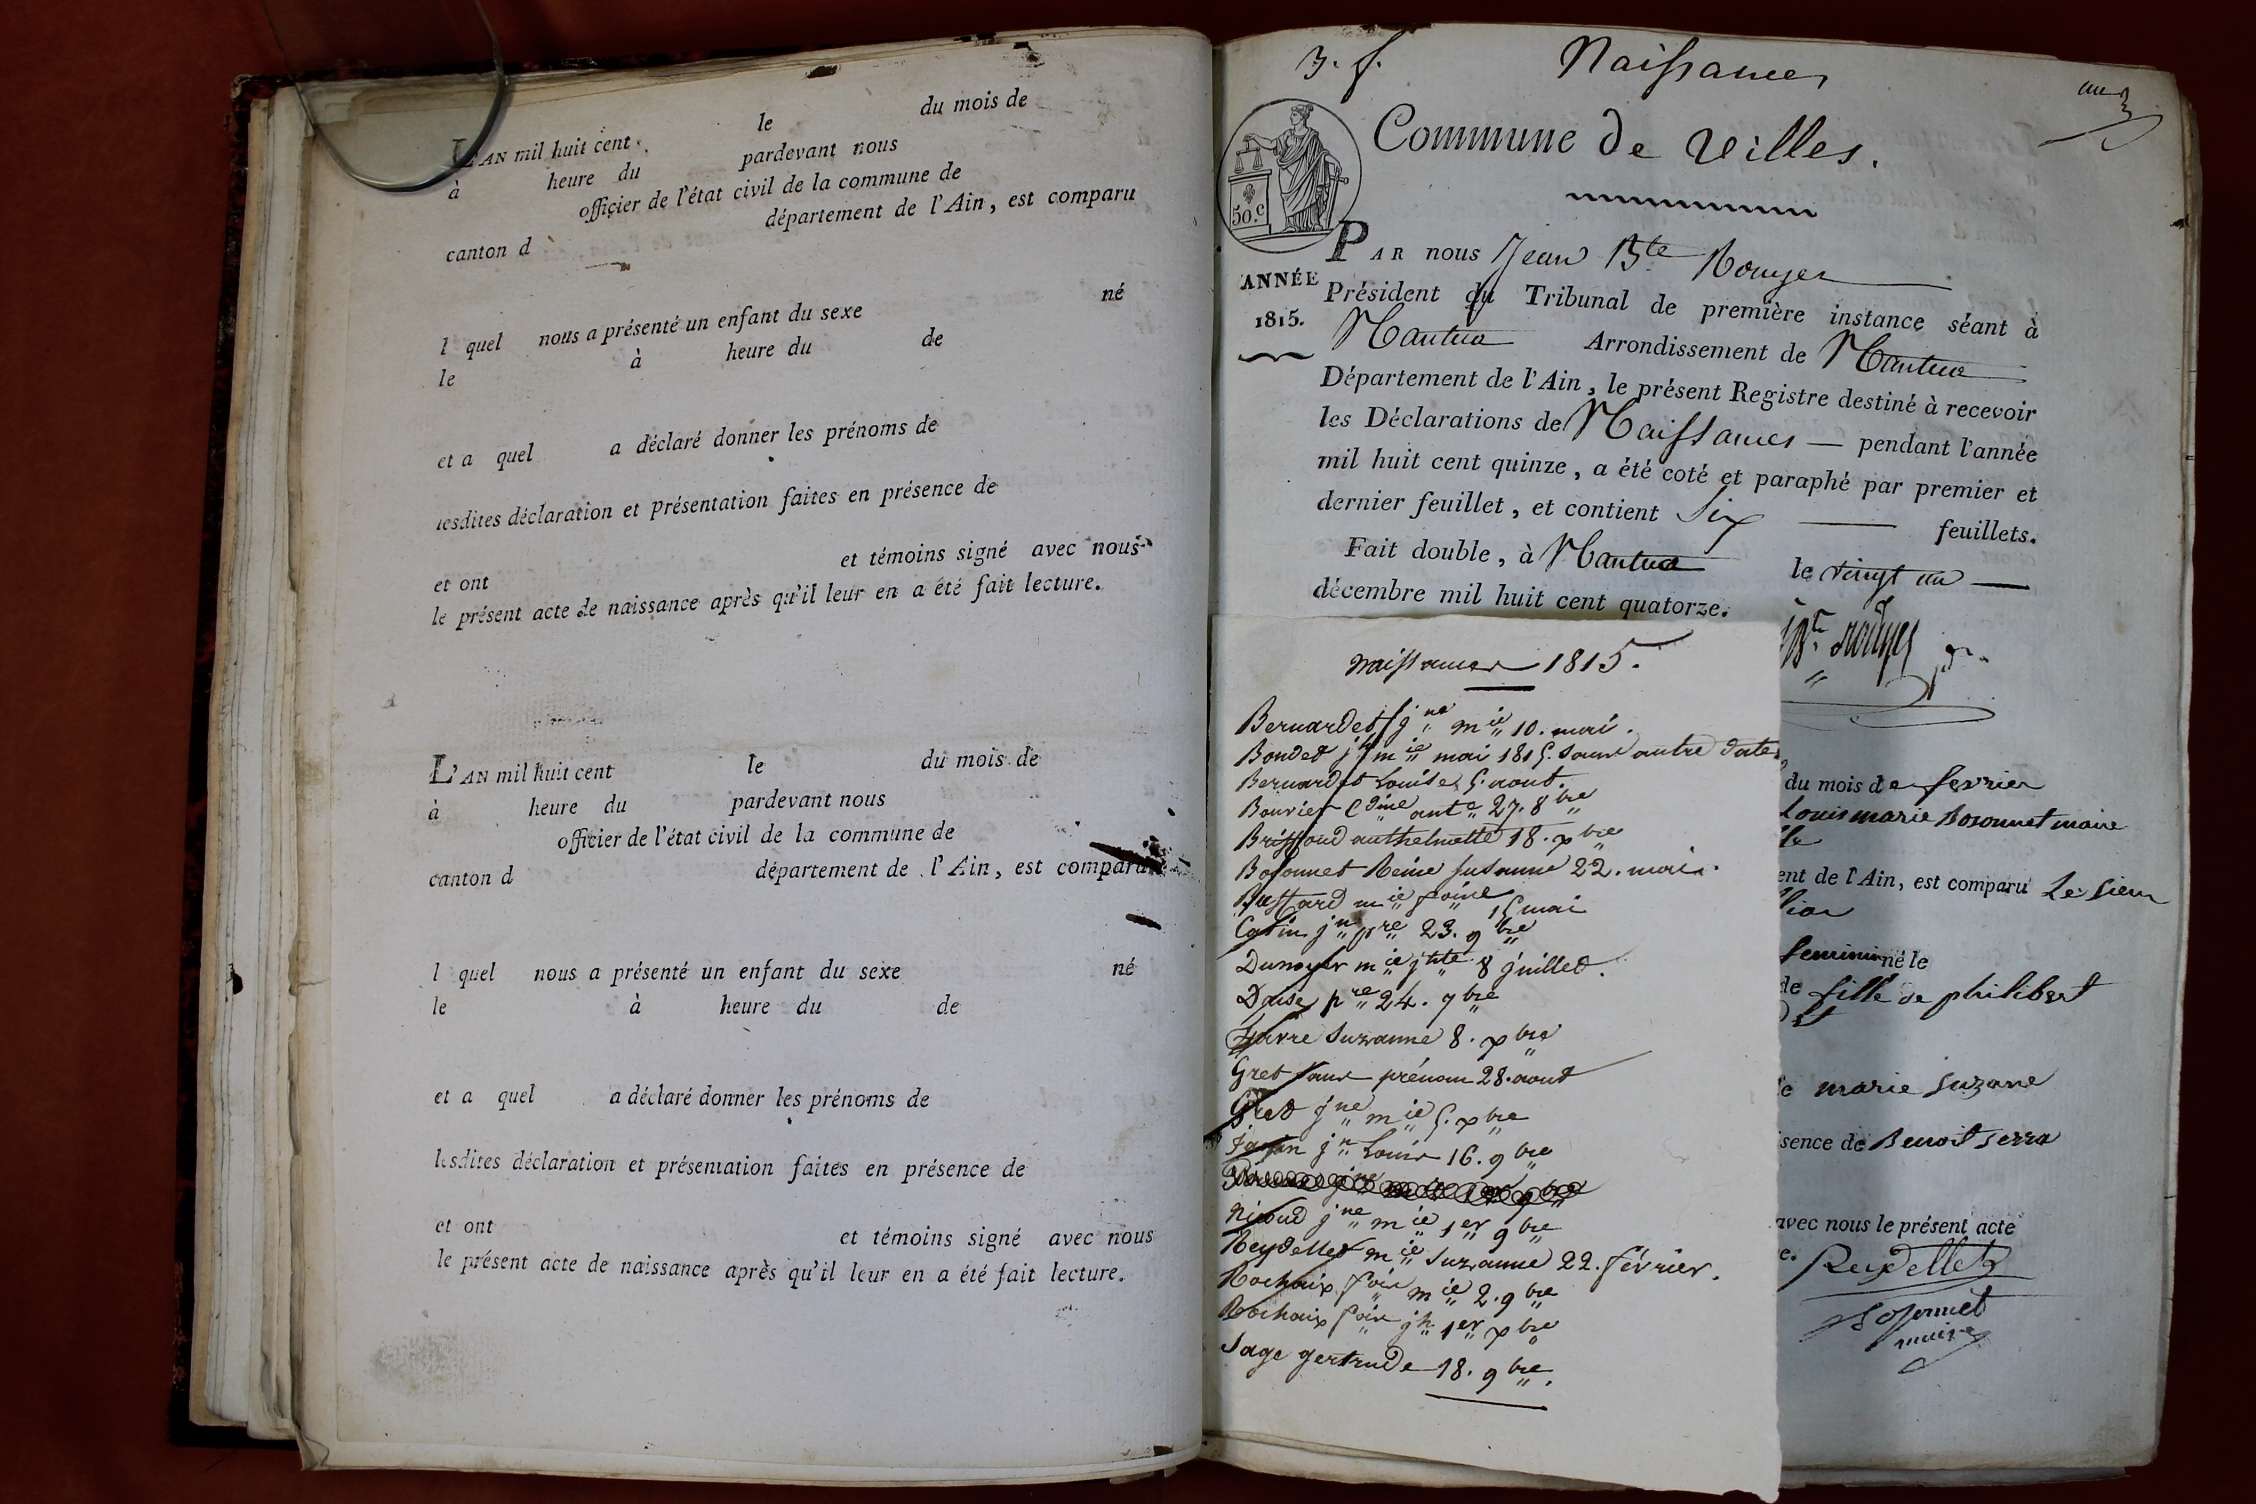 L'AN mil huit cent le du mois de
à heure du pardevant nous
officier de l'état civil de la commune de
canton d département de l'Ain, est comparu
l quel nous a présenté un enfant du sexe né
le à heure du de
et a quel a déclaré donner les prénoms de
lesdites déclaration et présentation faites en présence de
et ont et témoins signé avec nous
le présent acte de naissance après qu'il leur en a été fait lecture.
L'AN mil huit cent le du mois de
à heure du pardevant nous
officier de l'état civil de la commune de
canton d département de l'Ain, est comparu
l quel nous a présenté un enfant du sexe né
le à heure du de
et a quel a déclaré donner les prénoms de
lesdites déclaration et présentation faites en présence de
et ont et témoins signé avec nous
le présent acte de naissance après qu'il leur en a été fait lecture.
3. f. Naissances
Commune de Villes.
50.c
PAR nous Jean Bte Rouyer
ANNÉE
1815.
Président du Tribunal de première instance séant à
Nantua Arrondissement de Nantua
Département de l'Ain, le présent Registre destiné à recevoir
les Déclarations de Naissances — pendant l'année
mil huit cent quinze, a été coté et paraphé par premier et
dernier feuillet, et contient Six feuillets.
Fait double, à Nantua le vingt un
décembre mil huit cent quatorze.
naissances 1815.
Bernardet jne mie 10. mai.
Bondet jh mie mai 1815. sans autre date
Bernardet Louise 5. aout.
Bouvier Cdine ante 27. 8bre
Briffoud anthelmette 18. xbre
Bosonnet Reine susanne 22. mai.
Bustard mie foine 15 mai
Catin jn pre 23. 9bre
Dunoyer mie jtte 8 juillet.
Doise pre 24. 7bre
Favre Suzanne 8. xbre
Gret sans prénom 28. aout
Gret jne mie 5. xbre
Janin jn Louis 16. 9bre
Nicoud jne mie 1er 9bre
Reydellet mie Suzanne 22. février.
Rochaix foise mie 2. 9bre
Rochaix fois jh 1er xbre
Sage gertrude 18. 9bre.
du mois de fevrier
Louis marie Bosonnet maire
ent de l'Ain, est comparu Le sieur
feminin né le
de fille de philibert
marie suzane
sence de Benoit serra
avec nous le présent acte
e. Reydellet
Bosonnet
maire